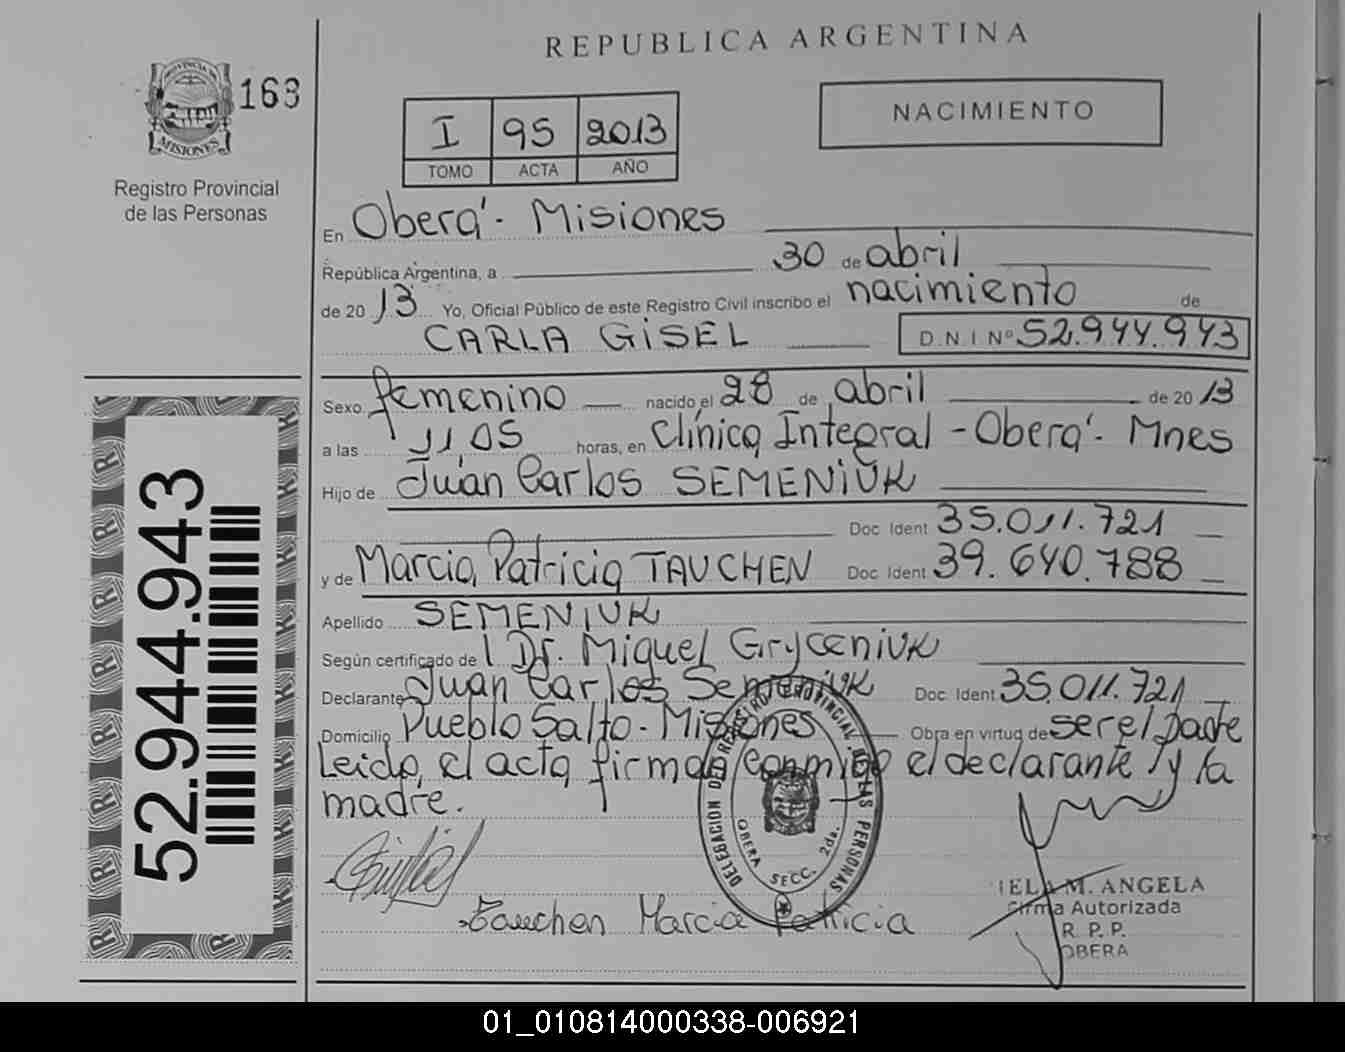 REPUBLICA ARGENTINA
PROVINCIA DE
MISIONES
163
Registro Provincial
de las Personas
I 95 2013
TOMO ACTA AÑO
NACIMIENTO
En Oberá - Misiones
República Argentina, a 30 de abril
de 2013 Yo, Oficial Público de este Registro Civil inscribo el nacimiento de
CARLA GISEL D.N.I Nº 52.944.943
Sexo femenino nacido el 28 de abril de 2013
a las 11,05 horas, en Clínica Integral - Oberá - Mnes
Hijo de Juan Carlos SEMENIUK
Doc Ident 35.011.721
y de Marcia Patricia TAUCHEN Doc Ident 39.640.788
Apellido SEMENIUK
Según certificado de l Dr. Miguel Gryceniuk
Declarante Juan Carlos Semeniuk Doc Ident 35.011.721
Domicilio Pueblo Salto - Misiones Obra en virtud de ser el padre
Leida el acta firman conmigo el declarante y la
madre.
52.944.943
DELEGACION DEL REGISTRO PROVINCIAL DE LAS PERSONAS
OBERA SECC. 2da.
Tauchen Marcia Patricia
IELA M. ANGELA
Firma Autorizada
R. P. P.
OBERA
01_010814000338-006921